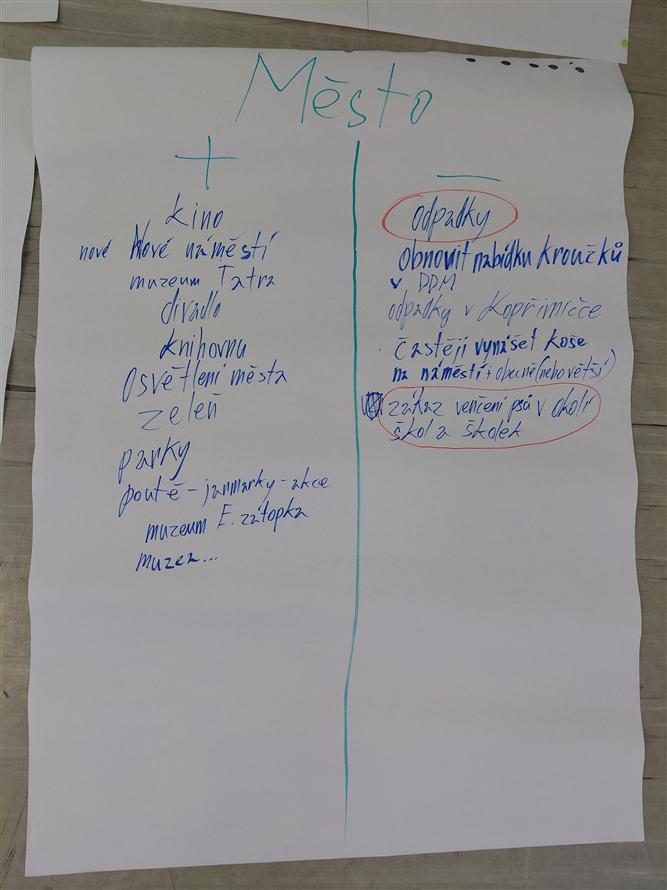 Město
+
kino
nové Nové náměstí
muzeum Tatra
divadlo
knihovnu
osvětlení města
zeleň
parky
poutě - jarmarky - akce
muzeum E. zátopka
muzea...
—
odpadky
obnovit nabídku kroučků
v DDM
odpadky v Kopřivničce
častěji vynášet koše
na náměstí i obecně (nebo větší)
zákaz venčení psů v okolí
škol a školek